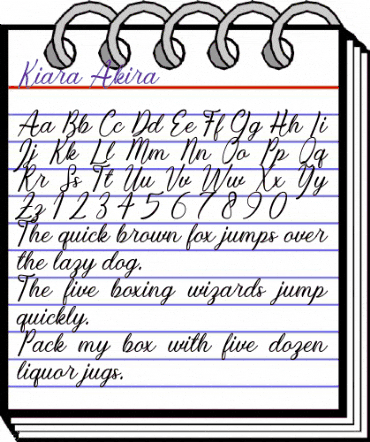 Kiara Akira
Aa Bb Cc Dd Ee Ff Gg Hh Ii
Jj Kk Ll Mm Nn Oo Pp Qq
Rr Ss Tt Uu Vv Ww Xx Yy
Zz 1 2 3 4 5 6 7 8 9 0
The quick brown fox jumps over
the lazy dog.
The five boxing wizards jump
quickly.
Pack my box with five dozen
liquor jugs.